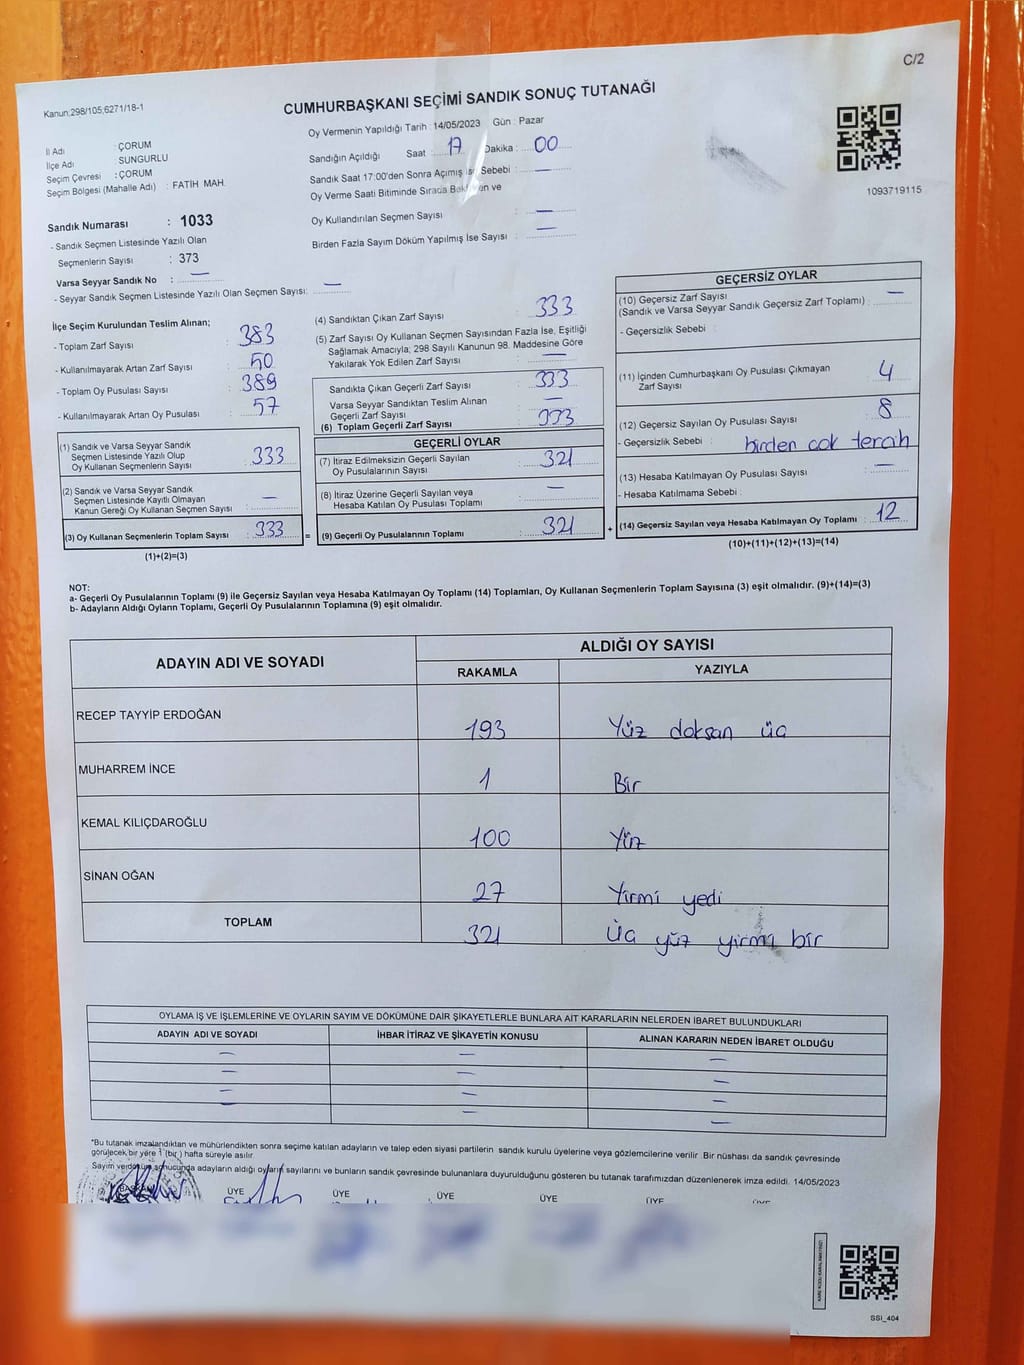 C/2
Kanun:298/105;6271/18-1
CUMHURBAŞKANI SEÇİMİ SANDIK SONUÇ TUTANAĞI
Oy Vermenin Yapıldığı Tarih : 14/05/2023 Gün : Pazar
İl Adı : ÇORUM
İlçe Adı : SUNGURLU
Seçim Çevresi : ÇORUM
Seçim Bölgesi (Mahalle Adı) : FATİH MAH.
Sandığın Açıldığı Saat : 17 Dakika : 00
Sandık Saat 17:00'den Sonra Açımış İse Sebebi : —
Oy Verme Saati Bitiminde Sırada ve
Oy Kullandırılan Seçmen Sayısı : —
Birden Fazla Sayım Döküm Yapılmış İse Sayısı : —
1093719115
Sandık Numarası : 1033
- Sandık Seçmen Listesinde Yazılı Olan
Seçmenlerin Sayısı : 373
Varsa Seyyar Sandık No : —
- Seyyar Sandık Seçmen Listesinde Yazılı Olan Seçmen Sayısı: —
İlçe Seçim Kurulundan Teslim Alınan;
- Toplam Zarf Sayısı : 383
- Kullanılmayarak Artan Zarf Sayısı : 50
- Toplam Oy Pusulası Sayısı : 389
- Kullanılmayarak Artan Oy Pusulası : 57
(1) Sandık ve Varsa Seyyar Sandık
Seçmen Listesinde Yazılı Olup
Oy Kullanan Seçmenlerin Sayısı : 333
(2) Sandık ve Varsa Seyyar Sandık
Seçmen Listesinde Kayıtlı Olmayan
Kanun Gereği Oy Kullanan Seçmen Sayısı : —
(3) Oy Kullanan Seçmenlerin Toplam Sayısı : 333
(1)+(2)=(3)
(4) Sandıktan Çıkan Zarf Sayısı : 333
(5) Zarf Sayısı Oy Kullanan Seçmen Sayısından Fazla İse, Eşitliği
Sağlamak Amacıyla; 298 Sayılı Kanunun 98. Maddesine Göre
Yakılarak Yok Edilen Zarf Sayısı : —
Sandıkta Çıkan Geçerli Zarf Sayısı : 333
Varsa Seyyar Sandıktan Teslim Alınan
Geçerli Zarf Sayısı : —
(6) Toplam Geçerli Zarf Sayısı : 333
GEÇERLİ OYLAR
(7) İtiraz Edilmeksizin Geçerli Sayılan
Oy Pusulalarının Sayısı : 321
(8) İtiraz Üzerine Geçerli Sayılan veya
Hesaba Katılan Oy Pusulası Toplamı : —
= (9) Geçerli Oy Pusulalarının Toplamı : 321
GEÇERSİZ OYLAR
(10) Geçersiz Zarf Sayısı
(Sandık ve Varsa Seyyar Sandık Geçersiz Zarf Toplamı) : —
- Geçersizlik Sebebi :
(11) İçinden Cumhurbaşkanı Oy Pusulası Çıkmayan
Zarf Sayısı : 4
(12) Geçersiz Sayılan Oy Pusulası Sayısı : 8
- Geçersizlik Sebebi : birden çok tercih
(13) Hesaba Katılmayan Oy Pusulası Sayısı : —
- Hesaba Katılmama Sebebi :
+ (14) Geçersiz Sayılan veya Hesaba Katılmayan Oy Toplamı : 12
(10)+(11)+(12)+(13)=(14)
NOT:
a- Geçerli Oy Pusulalarının Toplamı (9) ile Geçersiz Sayılan veya Hesaba Katılmayan Oy Toplamı (14) Toplamları, Oy Kullanan Seçmenlerin Toplam Sayısına (3) eşit olmalıdır. (9)+(14)=(3)
b- Adayların Aldığı Oyların Toplamı, Geçerli Oy Pusulalarının Toplamına (9) eşit olmalıdır.
ADAYIN ADI VE SOYADI ALDIĞI OY SAYISI
RAKAMLA YAZIYLA
RECEP TAYYİP ERDOĞAN 193 Yüz doksan üç
MUHARREM İNCE 1 Bir
KEMAL KILIÇDAROĞLU 100 Yüz
SİNAN OĞAN 27 Yirmi yedi
TOPLAM 321 Üç yüz yirmi bir
OYLAMA İŞ VE İŞLEMLERİNE VE OYLARIN SAYIM VE DÖKÜMÜNE DAİR ŞİKAYETLERLE BUNLARA AİT KARARLARIN NELERDEN İBARET BULUNDUKLARI
ADAYIN ADI VE SOYADI İHBAR İTİRAZ VE ŞİKAYETİN KONUSU ALINAN KARARIN NEDEN İBARET OLDUĞU
— — —
— — —
— — —
— — —
*Bu tutanak imzalandıktan ve mühürlendikten sonra seçime katılan adayların ve talep eden siyasi partilerin sandık kurulu üyelerine veya gözlemcilerine verilir. Bir nüshası da sandık çevresinde
görülecek bir yere 1 (bir) hafta süreyle asılır.
Sayım ve döküm sonucunda adayların aldığı oyların sayılarını ve bunların sandık çevresinde bulunanlara duyurulduğunu gösteren bu tutanak tarafımızdan düzenlenerek imza edildi. 14/05/2023
BAŞKAN ÜYE ÜYE ÜYE ÜYE ÜYE ÜYE
SSI_404